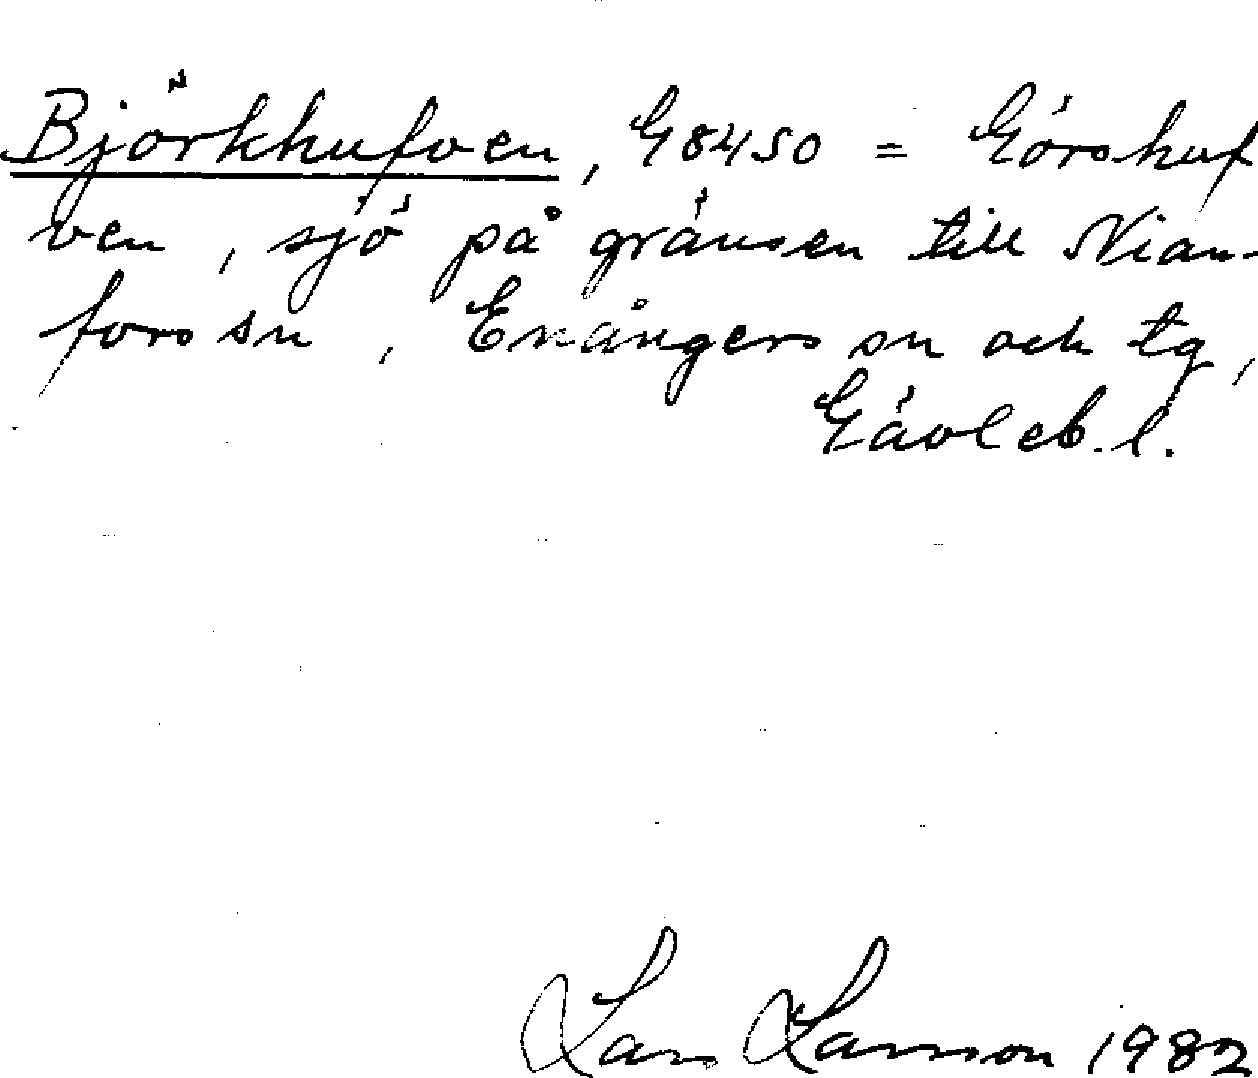 Björkhufven, G8450 = Görshuf
ven, sjö på gränsen till Nian-
fors sn, Enångers sn och tg,
Gävleb. l.
Lars Larsson 1982